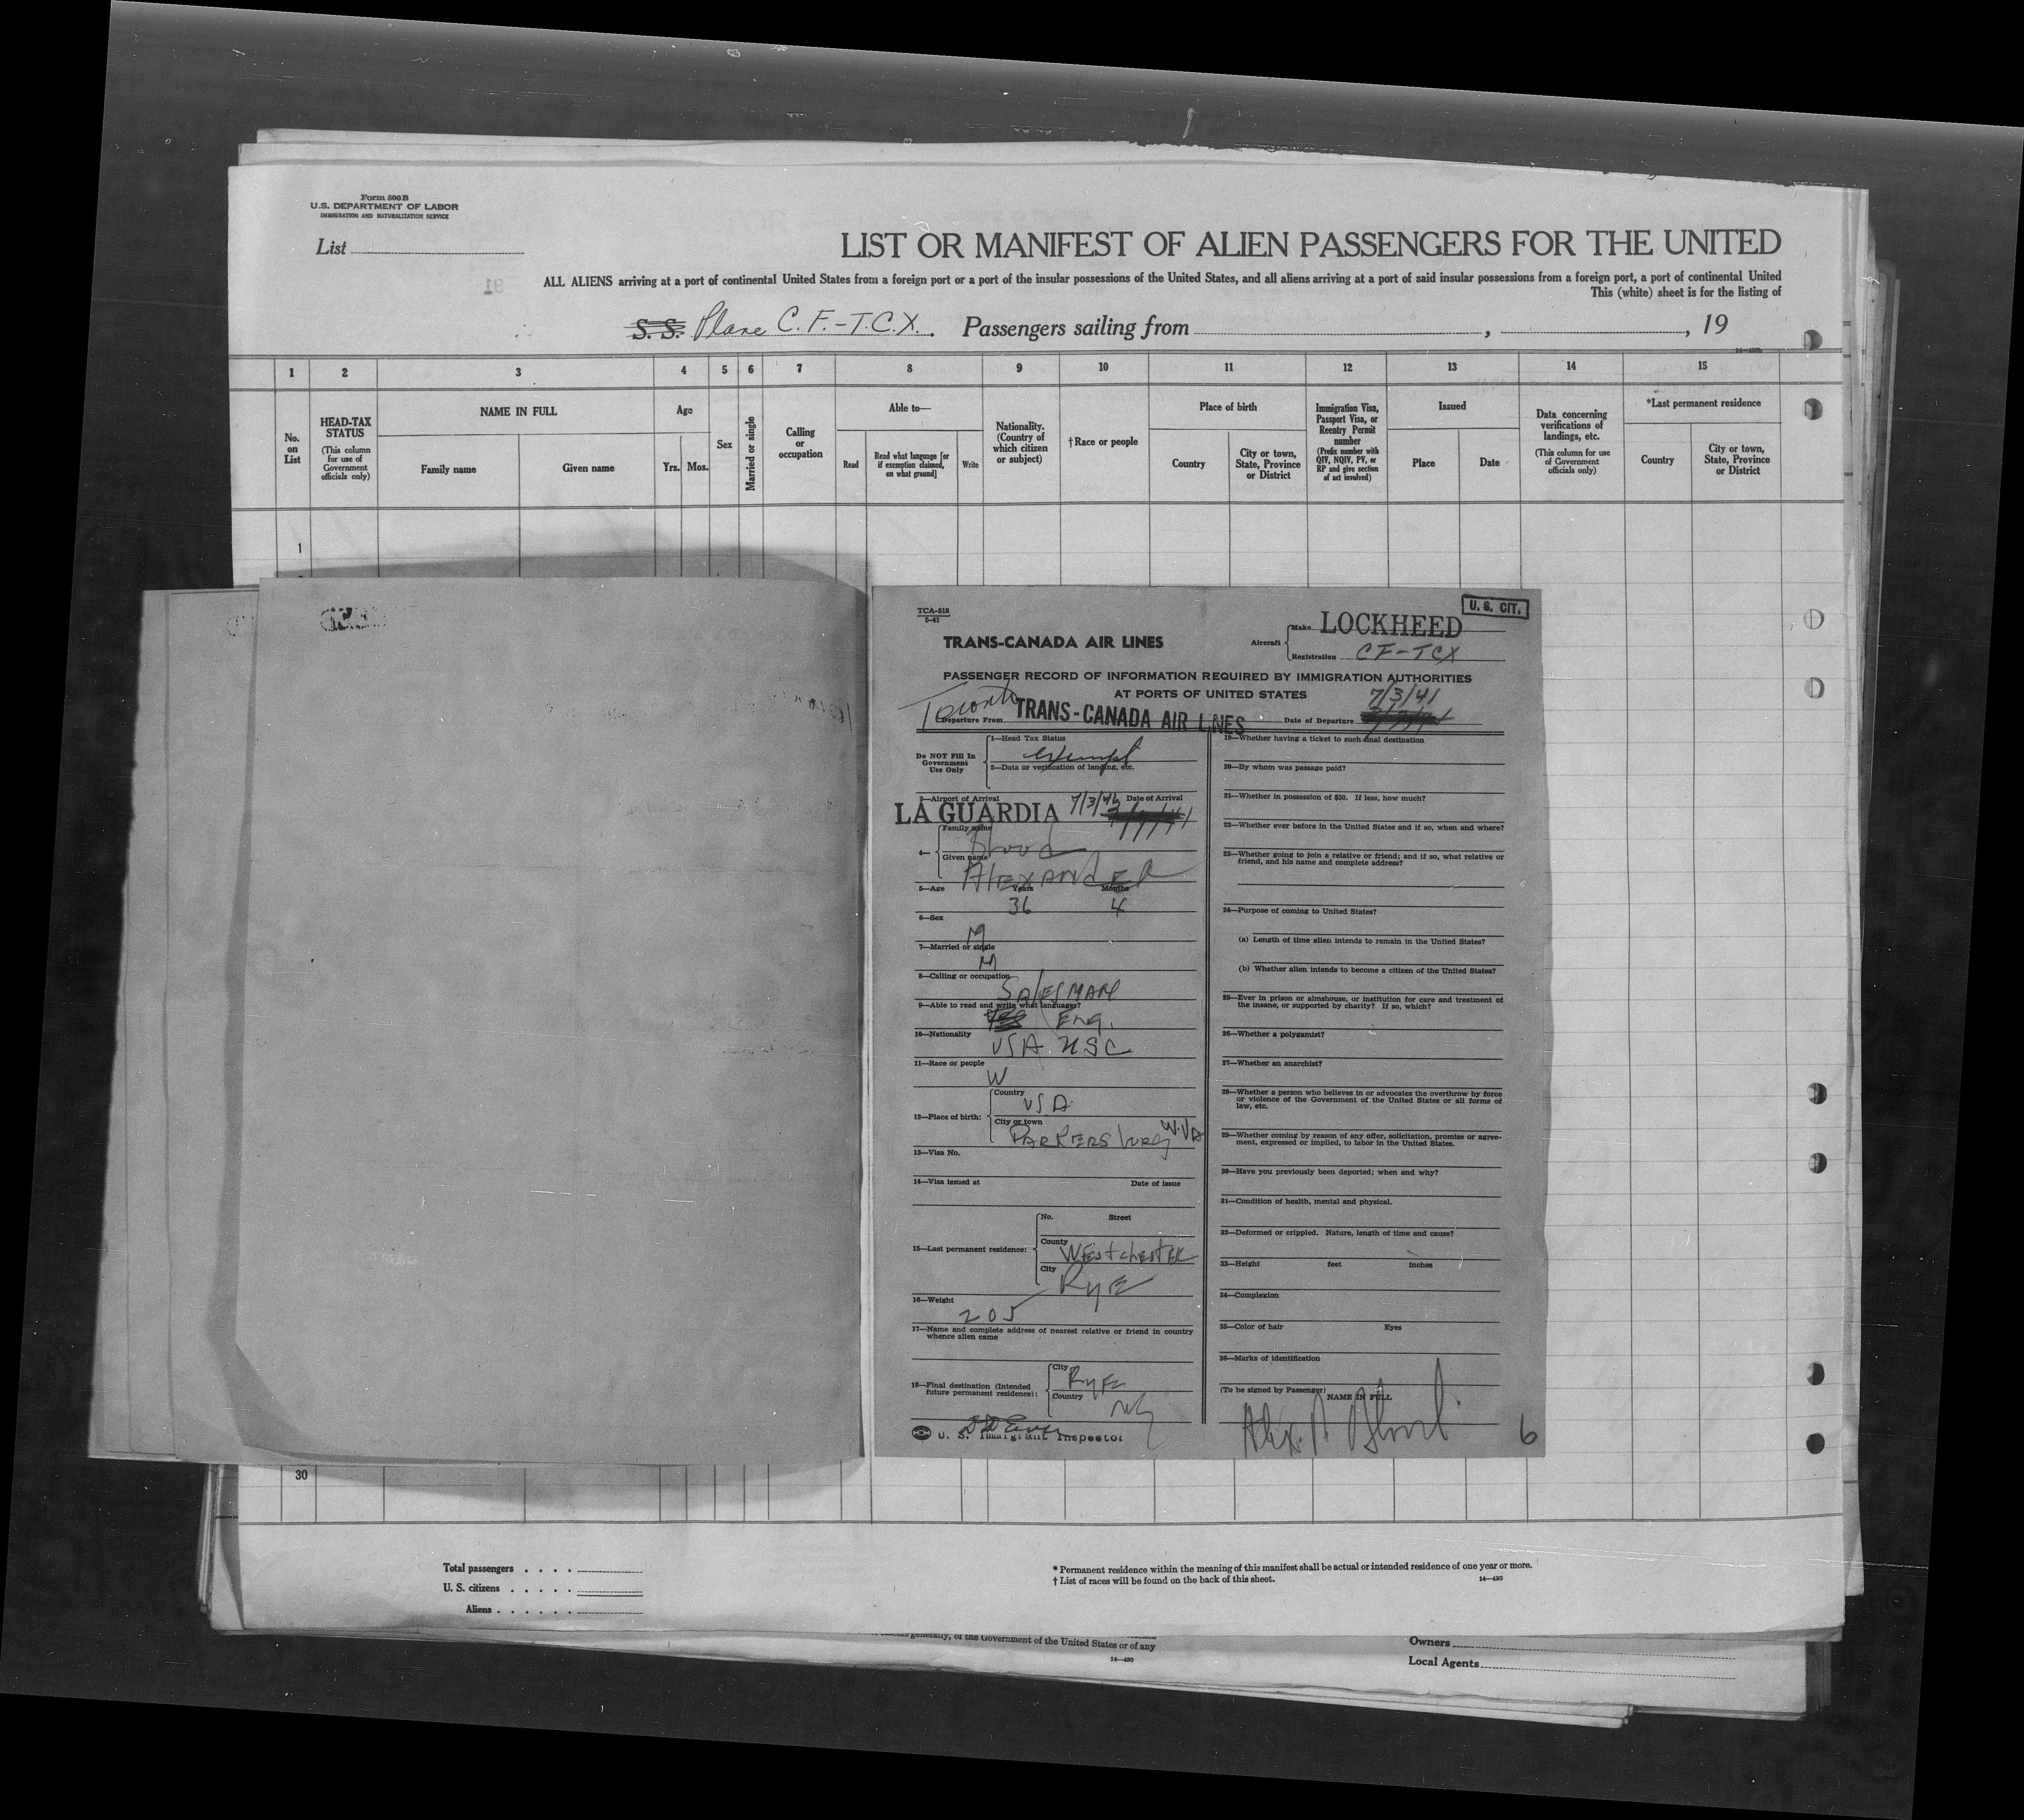 Form 500 B
U.S. DEPARTMENT OF LABOR
IMMIGRATION AND NATURALIZATION SERVICE
List
LIST OR MANIFEST OF ALIEN PASSENGERS FOR THE UNITED
ALL ALIENS arriving at a port of continental United States from a foreign port or a port of the insular possessions of the United States, and all aliens arriving at a port of said insular possessions from a foreign port, a port of continental United
This (white) sheet is for the listing of
S.S. Plane C.F.-T.C.X. Passengers sailing from , , 19
1 2 3 4 5 6 7 8 9 10 11 12 13 14 15
No. on List
HEAD-TAX STATUS
(This column for use of Government officials only)
NAME IN FULL
Family name Given name
Age
Yrs. Mos.
Sex
Married or single
Calling or occupation
Able to—
Read
Read what language [or if exemption claimed, on what ground]
Write
Nationality. (Country of which citizen or subject)
†Race or people
Place of birth
Country
City or town, State, Province or District
Immigration Visa, Passport Visa, or Reentry Permit number
(Prefix number with QIV, NQIV, PV, or RP and give section of act involved)
Issued
Place Date
Data concerning verifications of landings, etc.
(This column for use of Government officials only)
*Last permanent residence
Country
City or town, State, Province or District
1
TCA-518
5-41
U. S. CIT.
TRANS-CANADA AIR LINES
Aircraft Make LOCKHEED
Registration CF-TCX
PASSENGER RECORD OF INFORMATION REQUIRED BY IMMIGRATION AUTHORITIES
AT PORTS OF UNITED STATES
Toronto
7/3/41
Departure From TRANS-CANADA AIR LINES Date of Departure
Do NOT Fill In Government Use Only
1—Head Tax Status
exempt
2—Data or verification of landing, etc.
3—Airport of Arrival Date of Arrival
LA GUARDIA 7/3/41
4— Family name
Blood
Given name
ALEXANDER
5—Age Years Months
36 4
6—Sex
M
7—Married or single
M
8—Calling or occupation
SALESMAN
9—Able to read and write what languages?
Yes Eng.
10—Nationality
USA USC
11—Race or people
W
12—Place of birth: Country
USA
City or town
PARKERSburg W.VA
13—Visa No.
14—Visa issued at Date of issue
15—Last permanent residence: No. Street
County WEstchestER
City RyE
16—Weight
205
17—Name and complete address of nearest relative or friend in country
whence alien came
18—Final destination (Intended
future permanent residence): City RyE
Country NY
U. S. Immigrant Inspector
19—Whether having a ticket to such final destination
20—By whom was passage paid?
21—Whether in possession of $50. If less, how much?
22—Whether ever before in the United States and if so, when and where?
23—Whether going to join a relative or friend; and if so, what relative or
friend, and his name and complete address?
24—Purpose of coming to United States?
(a) Length of time alien intends to remain in the United States?
(b) Whether alien intends to become a citizen of the United States?
25—Ever in prison or almshouse, or institution for care and treatment of
the insane, or supported by charity? If so, which?
26—Whether a polygamist?
27—Whether an anarchist?
28—Whether a person who believes in or advocates the overthrow by force
or violence of the Government of the United States or all forms of
law, etc.
29—Whether coming by reason of any offer, solicitation, promise or agree-
ment, expressed or implied, to labor in the United States.
30—Have you previously been deported; when and why?
31—Condition of health, mental and physical.
32—Deformed or crippled. Nature, length of time and cause?
33—Height feet inches
34—Complexion
35—Color of hair Eyes
36—Marks of identification
(To be signed by Passenger) NAME IN FULL
Alex. Blood
6
30
Total passengers
U. S. citizens
Aliens
* Permanent residence within the meaning of this manifest shall be actual or intended residence of one year or more.
† List of races will be found on the back of this sheet.
14—420
generally, of the Government of the United States or of any
14—420
Owners
Local Agents